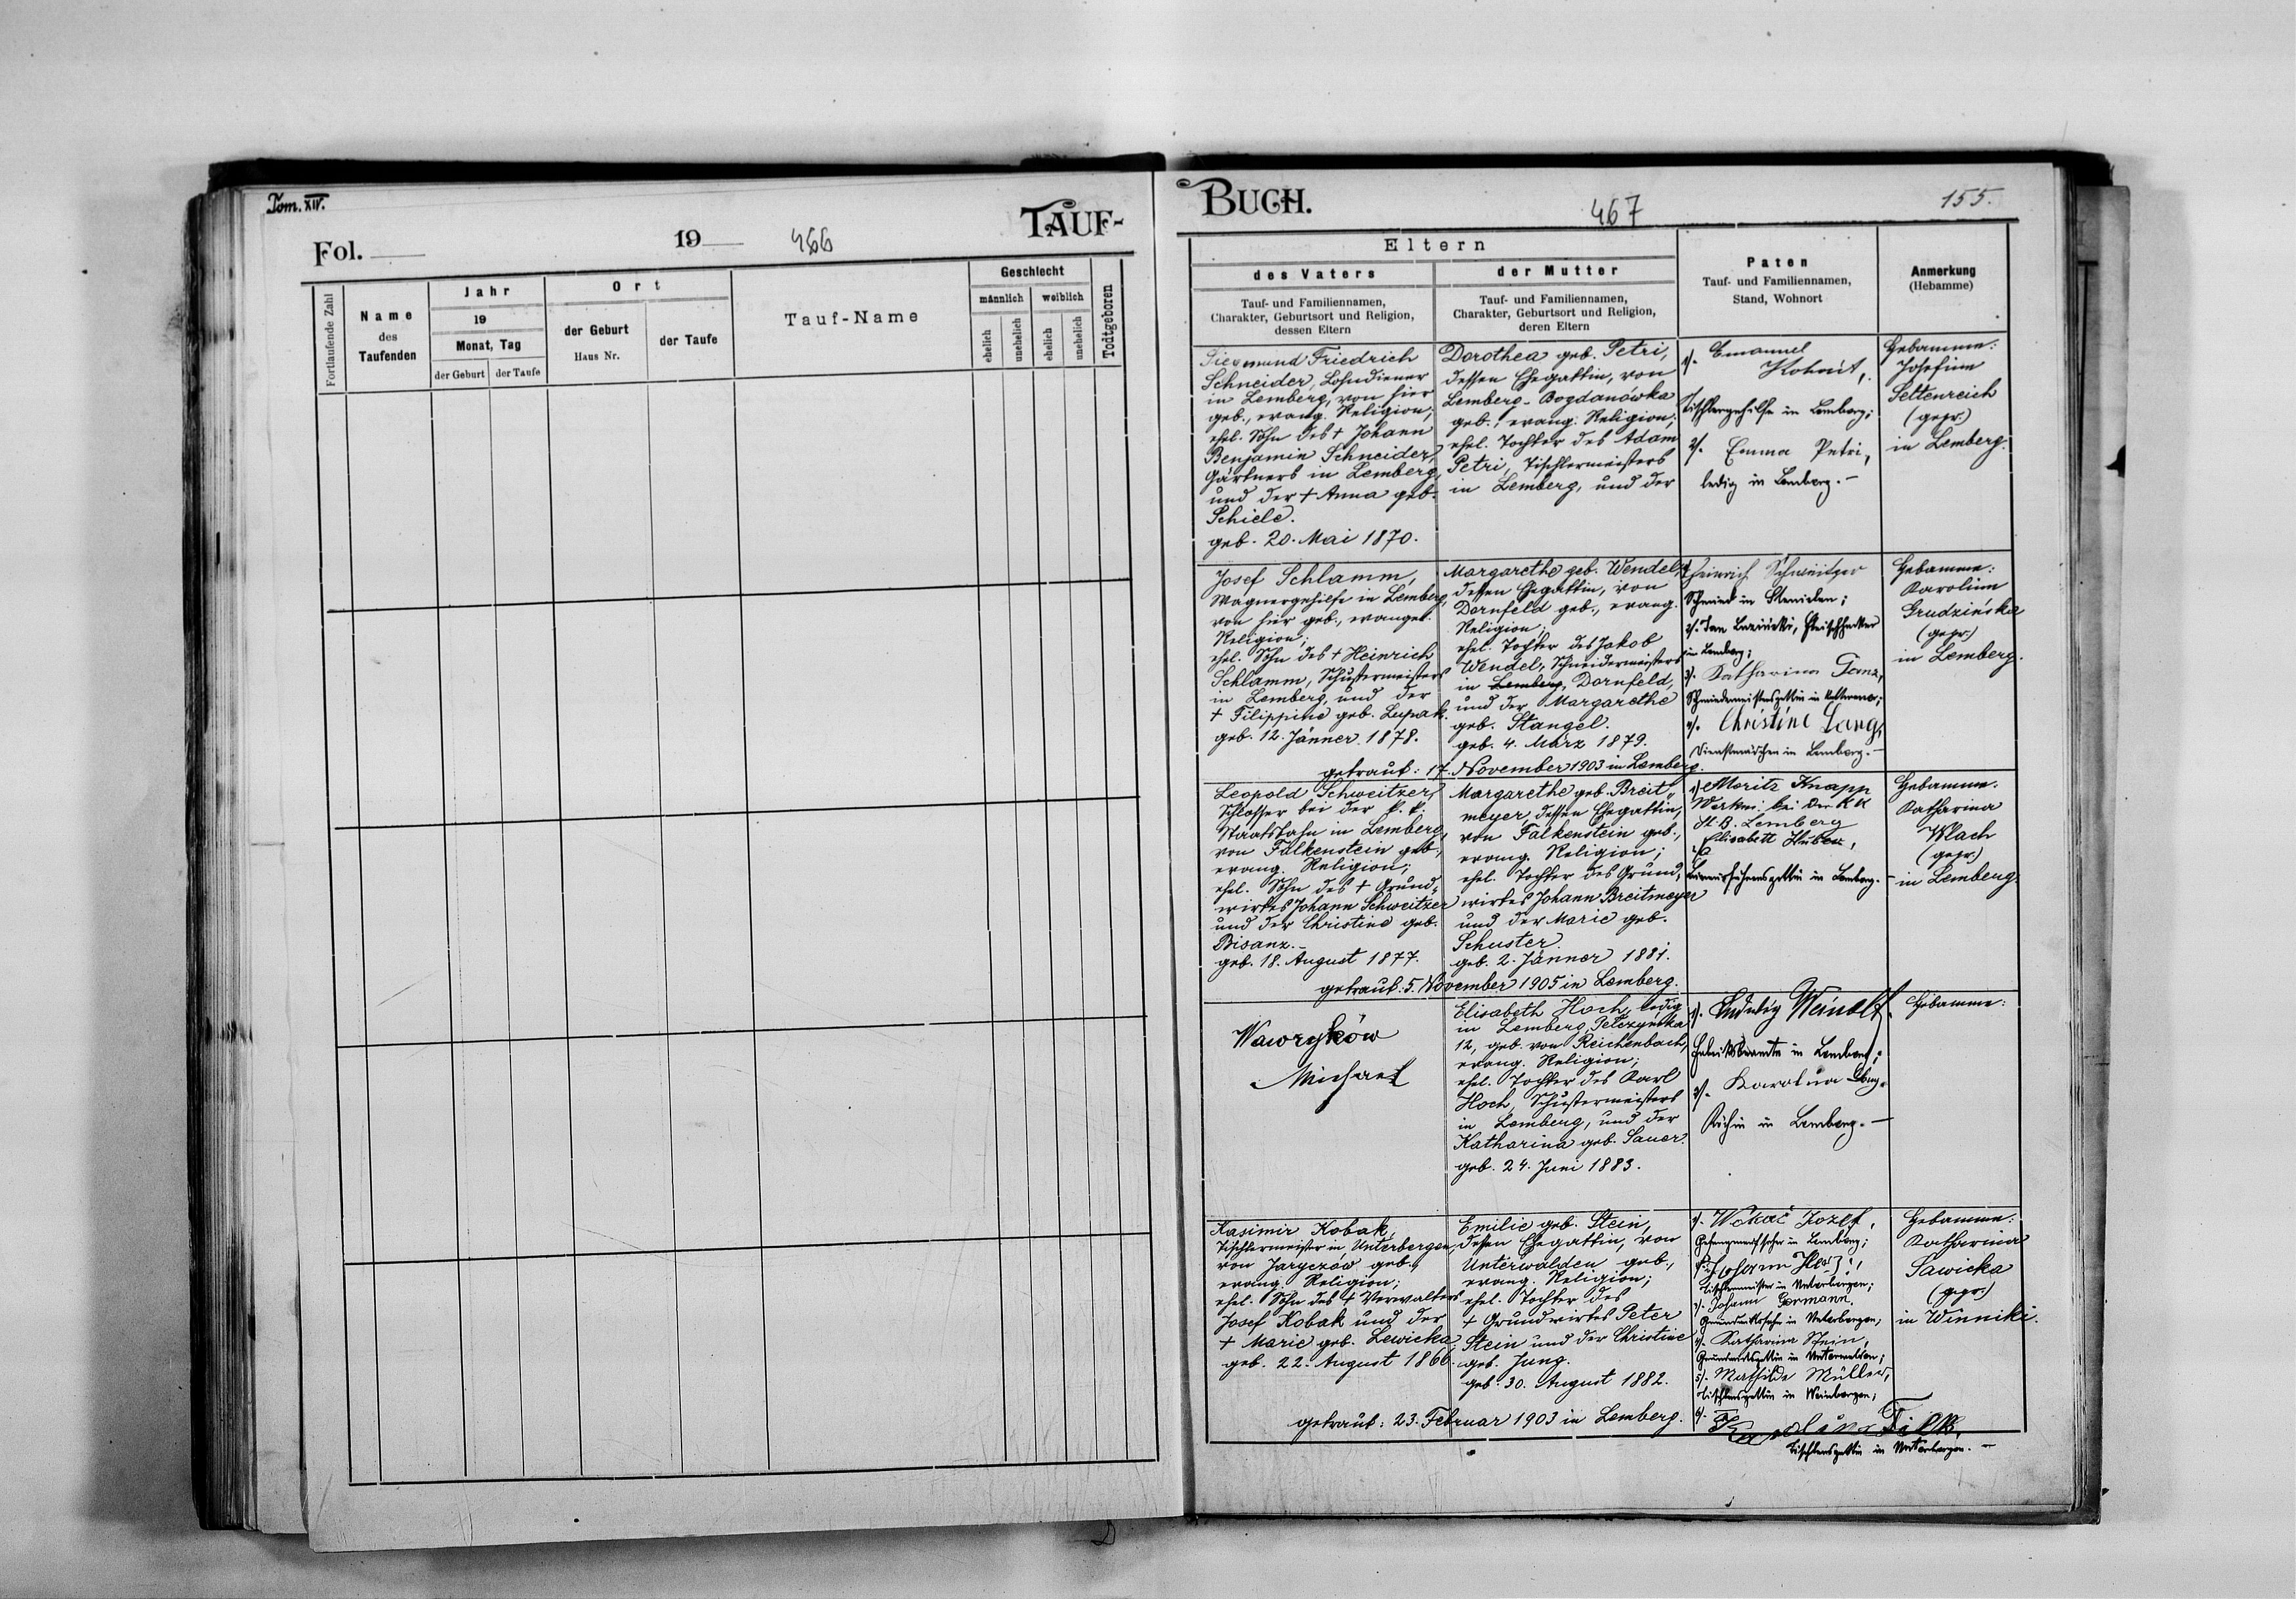 Tom. XIV.
Fol.
19
466
TAUF-
Fortlaufende Zahl
Name
des
Taufenden
Jahr
19
Monat, Tag
der Geburt
der Taufe
Ort
der Geburt
Haus Nr.
der Taufe
Tauf-Name
Geschlecht
männlich
weiblich
ehelich
unehelich
ehelich
unehelich
Todtgeboren
BUCH.
467
155.
Eltern
des Vaters
Tauf- und Familiennamen,
Charakter, Geburtsort und Religion,
dessen Eltern
der Mutter
Tauf- und Familiennamen,
Charakter, Geburtsort und Religion,
deren Eltern
Paten
Tauf- und Familiennamen,
Stand, Wohnort
Anmerkung
(Hebamme)
Siegmund Friedrich
Schneider, Lohndiener
in Lemberg, von hier
geb., evang. Religion;
ehel. Sohn des † Johann
Benjamin Schneider,
Gärtners in Lemberg,
und der † Anna geb.
Schiele.
geb. 20. Mai 1870.
Dorothea geb. Petri,
dessen Ehegattin, von
Lemberg-Bogdanówka
geb., evang. Religion;
ehel. Tochter des Adam
Petri, Tischlermeisters
in Lemberg, und der
1/. Emanuel
Kohout,
Tischlergehilfe in Lemberg;
2/. Emma Petri,
ledig in Lemberg. —
Hebamme:
Josefine
Settenreich
(gepr.)
in Lemberg.
Josef Schlamm,
Wagnergehilfe in Lemberg,
von hier geb., evangel.
Religion;
ehel. Sohn des † Heinrich
Schlamm, Schustermeisters
in Lemberg, und der
† Filippine geb. Lupak.
geb. 12. Jänner 1878.
Margarethe geb. Wendel,
dessen Ehegattin, von
Dornfeld geb., evang.
Religion;
ehel. Tochter des Jakob
Wendel, Schneidermeisters
in Lemberg, Dornfeld,
und der Margarethe
geb. Stangel.
geb. 4. März 1879.
getraut: 17. November 1903 in Lemberg.
1/. Heinrich Schweitzer
Schmied in
2/. Jan Fleischhacker
in Lemberg;
3/. Katharina Ganz,
Schmiedemeistersgattin in
4/. Christine Lang,
Dienstmädchen in Lemberg. —
Hebamme:
Karoline
Grudzińska
(gepr.)
in Lemberg.
Leopold Schweitzer,
Schlosser bei der k. k.
Staatsbahn in Lemberg,
von Falkenstein geb.,
evang. Religion;
ehel. Sohn des † Grund-
wirtes Johann Schweitzer
und der Christine geb.
Bisanz. —
geb. 18. August 1877.
Margarethe geb. Breit-
meyer, dessen Ehegattin,
von Falkenstein geb.,
evang. Religion;
ehel. Tochter des Grund-
wirtes Johann Breitmeyer
und der Marie geb.
Schuster.
geb. 2. Jänner 1881.
getraut: 5. November 1905 in Lemberg.
1/ Moritz Knapp
Werkm. bei der KK
St. B. Lemberg
Elisabeth Huber,
in Lemberg. —
Hebamme:
Katharina
Wlach
(gepr.)
in Lemberg.
Wawryków
Michael
Elisabeth Hoch, ledig
in Lemberg, Pełczyńska
12, geb. von Reichenbach,
evang. Religion;
ehel. Tochter des Karl
Hoch, Schustermeisters
in Lemberg, und der
Katharina geb. Sauer.
geb. 24. Juni 1883.
1/. Ludwig Weinolt,
Fabriksbeamte in Lemberg;
2/. Karolina
Köchin in Lemberg. —
Hebamme:
Kasimir Kobak,
Tischlermeister in Unterbergen,
von Jaryczów geb.,
evang. Religion;
ehel. Sohn des † Verwalters
Josef Kobak und der
† Marie geb. Lewicka.
geb. 22. August 1866.
Emilie geb. Stein,
dessen Ehegattin, von
Unterwalden geb.,
evang. Religion;
ehel. Tochter des
† Grundwirtes Peter
Stein und der Christine
geb. Jung.
geb. 30. August 1882.
getraut: 23. Februar 1903 in Lemberg.
1/. Józef,
Gefangenaufseher in Lemberg;
2/. Johann
Tischlermeister in Unterbergen;
3/. Johann Germann,
Grundwirtssohn in Unterbergen,
4/. Katharina Stein,
Grundwirtsgattin in Unterwalden;
5/. Mathilde Müller,
Tischlersgattin in Weinbergen;
6/.
Karolina
Tischlersgattin in Unterbergen. —
Hebamme:
Katharina
Sawicka
(gepr.)
in Winniki.